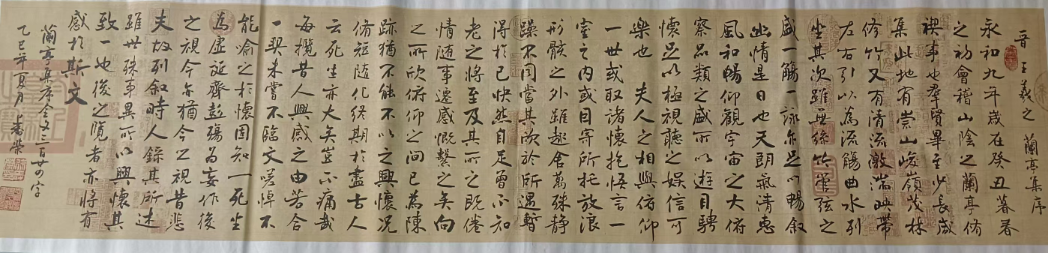 晋 王羲之 蘭亭集序
永和九年歲在癸丑暮春
之初會稽山陰之蘭亭脩
禊事也羣賢畢至少長咸
集此地有崇山峻嶺茂林
修竹又有清流激湍映帶
左右引以為流觴曲水列
坐其次雖無絲竹管弦之
盛一觴一詠亦足以暢叙
幽情是日也天朗氣清惠
風和暢仰觀宇宙之大俯
察品類之盛所以遊目騁
懷足以極視聽之娛信可
樂也 夫人之相與俯仰
一世或取諸懷抱悟言一
室之内或因寄所托放浪
形骸之外雖趣舍萬殊静
躁不同當其欣於所遇暫
得於己快然自足曾不知
老之將至及其所之既倦
情隨事遷感慨繫之矣向
之所欣俯仰之間已為陳
跡猶不能不以之興懷況
脩短隨化終期於盡古人
云死生亦大矣豈不痛哉
每攬昔人興感之由若合
一契未嘗不臨文嗟悼不
能喻之於懷固知一死生
為虛誕齊彭殤為妄作後
之視今亦猶今之視昔悲
夫故列叙時人錄其所述
雖世殊事異所以興懷其
致一也後之覽者亦將有
感於斯文
蘭亭集序全文三百廿四字
乙巳年夏月 榮